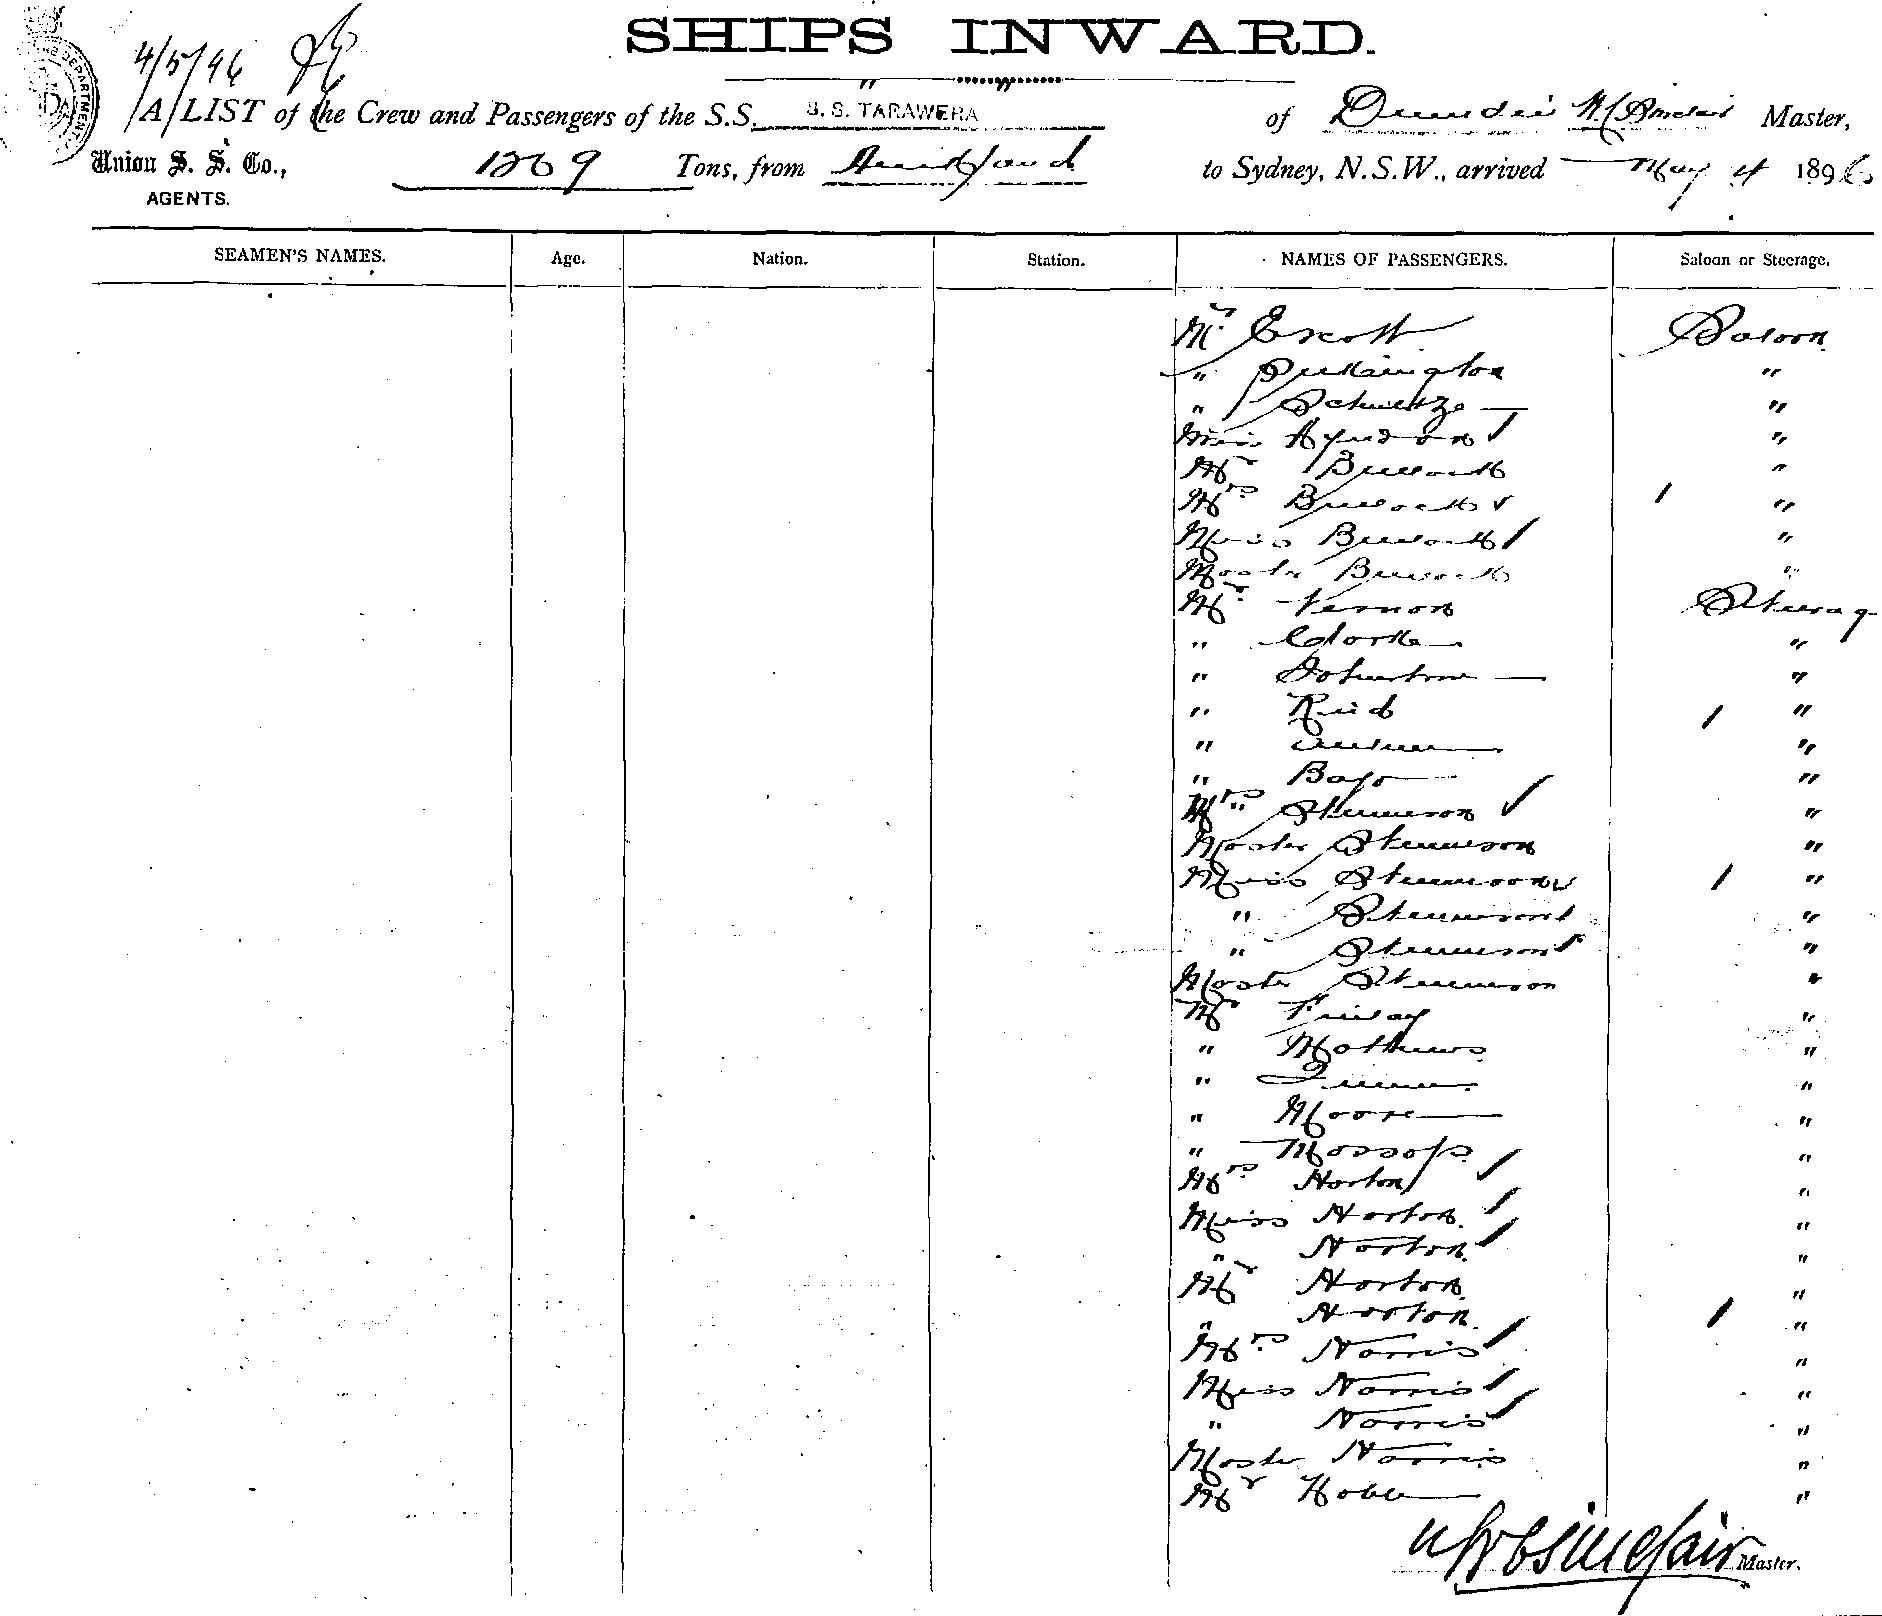 SHIPS INWARD.
4/5/96
A LIST of the Crew and Passengers of the S.S. S. S. TARAWERA of Dunedin W. C. Sinclair Master,
Union S. S. Co., 1269 Tons, from Auckland to Sydney, N.S.W., arrived May 4 1896
AGENTS.
SEAMEN'S NAMES. Age. Nation. Station. NAMES OF PASSENGERS. Saloon or Steerage.
Mr Escott Saloon
" Pilkington "
" Schultze "
Miss "
Mr Bullock "
Mrs Bullock "
Miss Bullock "
Master Bullock "
Mr Vernon Steerag
" Clarke "
" Johnstone "
" Reid "
" "
" "
Mrs " Stevenson "
Master Stevenson "
Miss Stevenson "
" Stevenson "
" Stevenson "
Master Stevenson "
Mr Finlay "
" Mathews "
" "
" Moore "
" Mossop "
Mrs Horton "
Miss Horton "
" Horton "
Mr Horton "
" Horton "
Mrs Norris "
Miss Norris "
" Norris "
Master Norris "
Mr "
Sinclair Master.